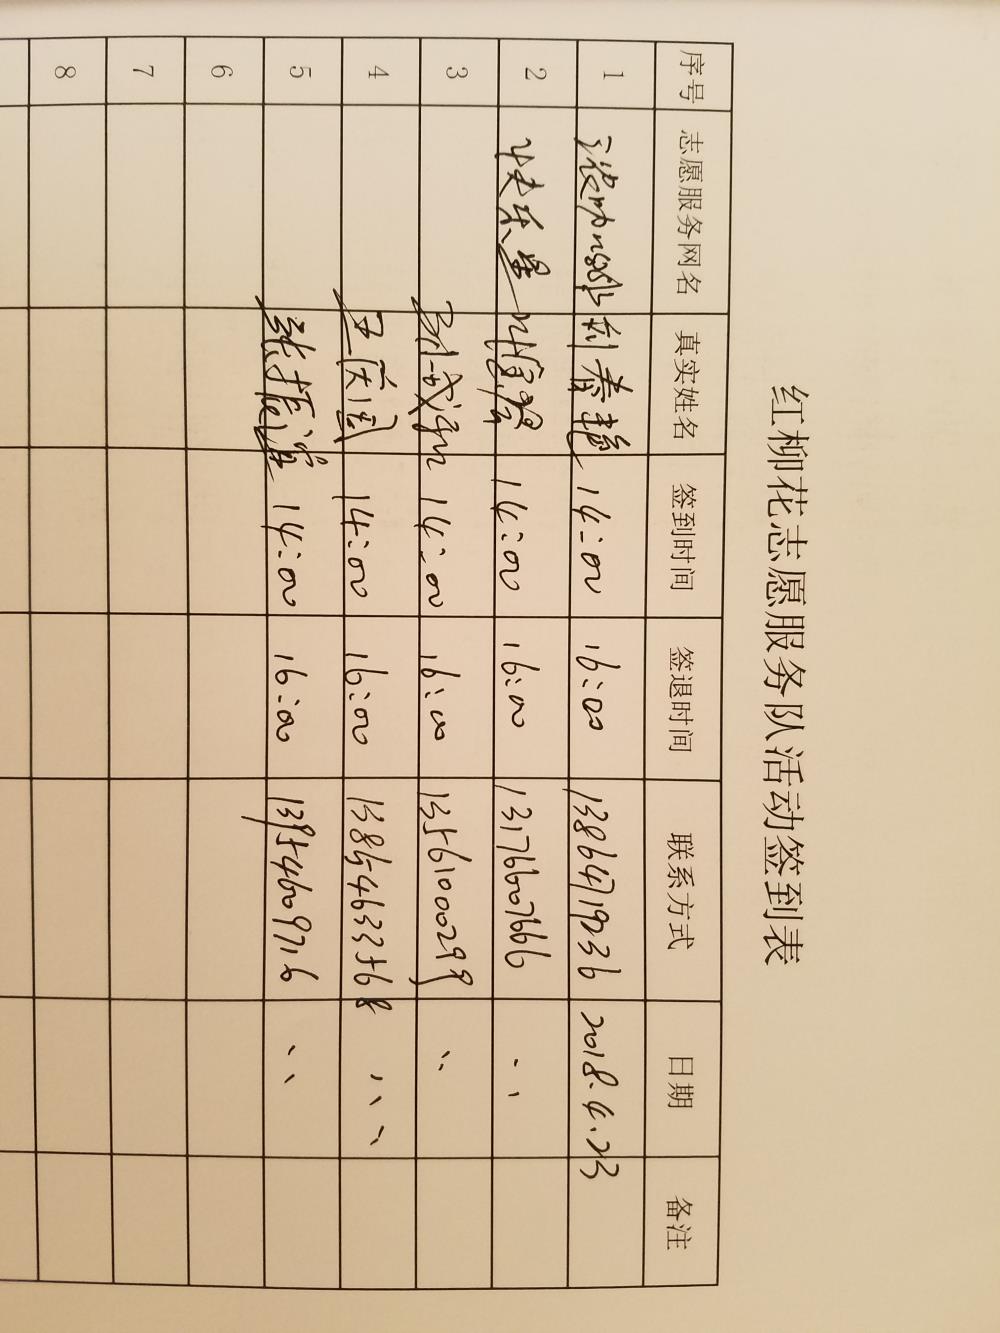 红柳花志愿服务队活动签到表
序号 志愿服务网名 真实姓名 签到时间 签退时间 联系方式 日期 备注
1 14:00 16:00 13864719236 2018.4.23
2 快乐星 14:00 16:00 13176607666 〃
3 14:00 16:00 13561000299 〃
4 14:00 16:00 13854633568 〃
5 张振军 14:00 16:00 13954609716 〃
6
7
8